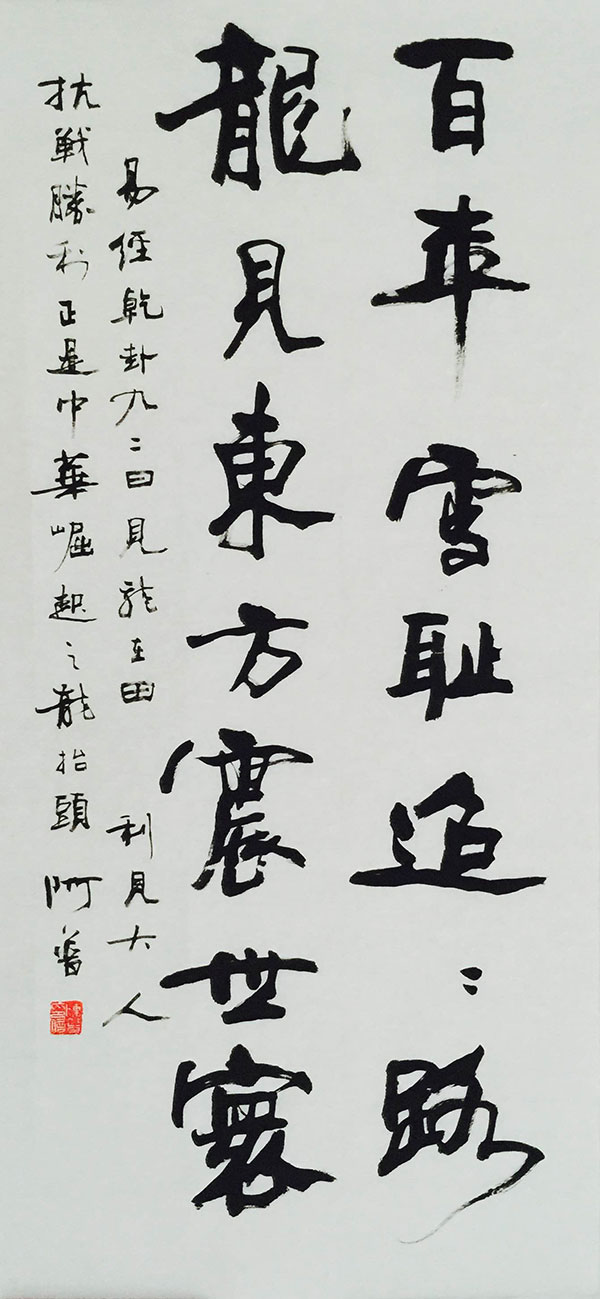 百年雪耻迢〻路
龍見東方震世寰
易經乾卦九二曰見龍在田 利見大人
抗戦勝利正是中華崛起之龍抬頭 阿普